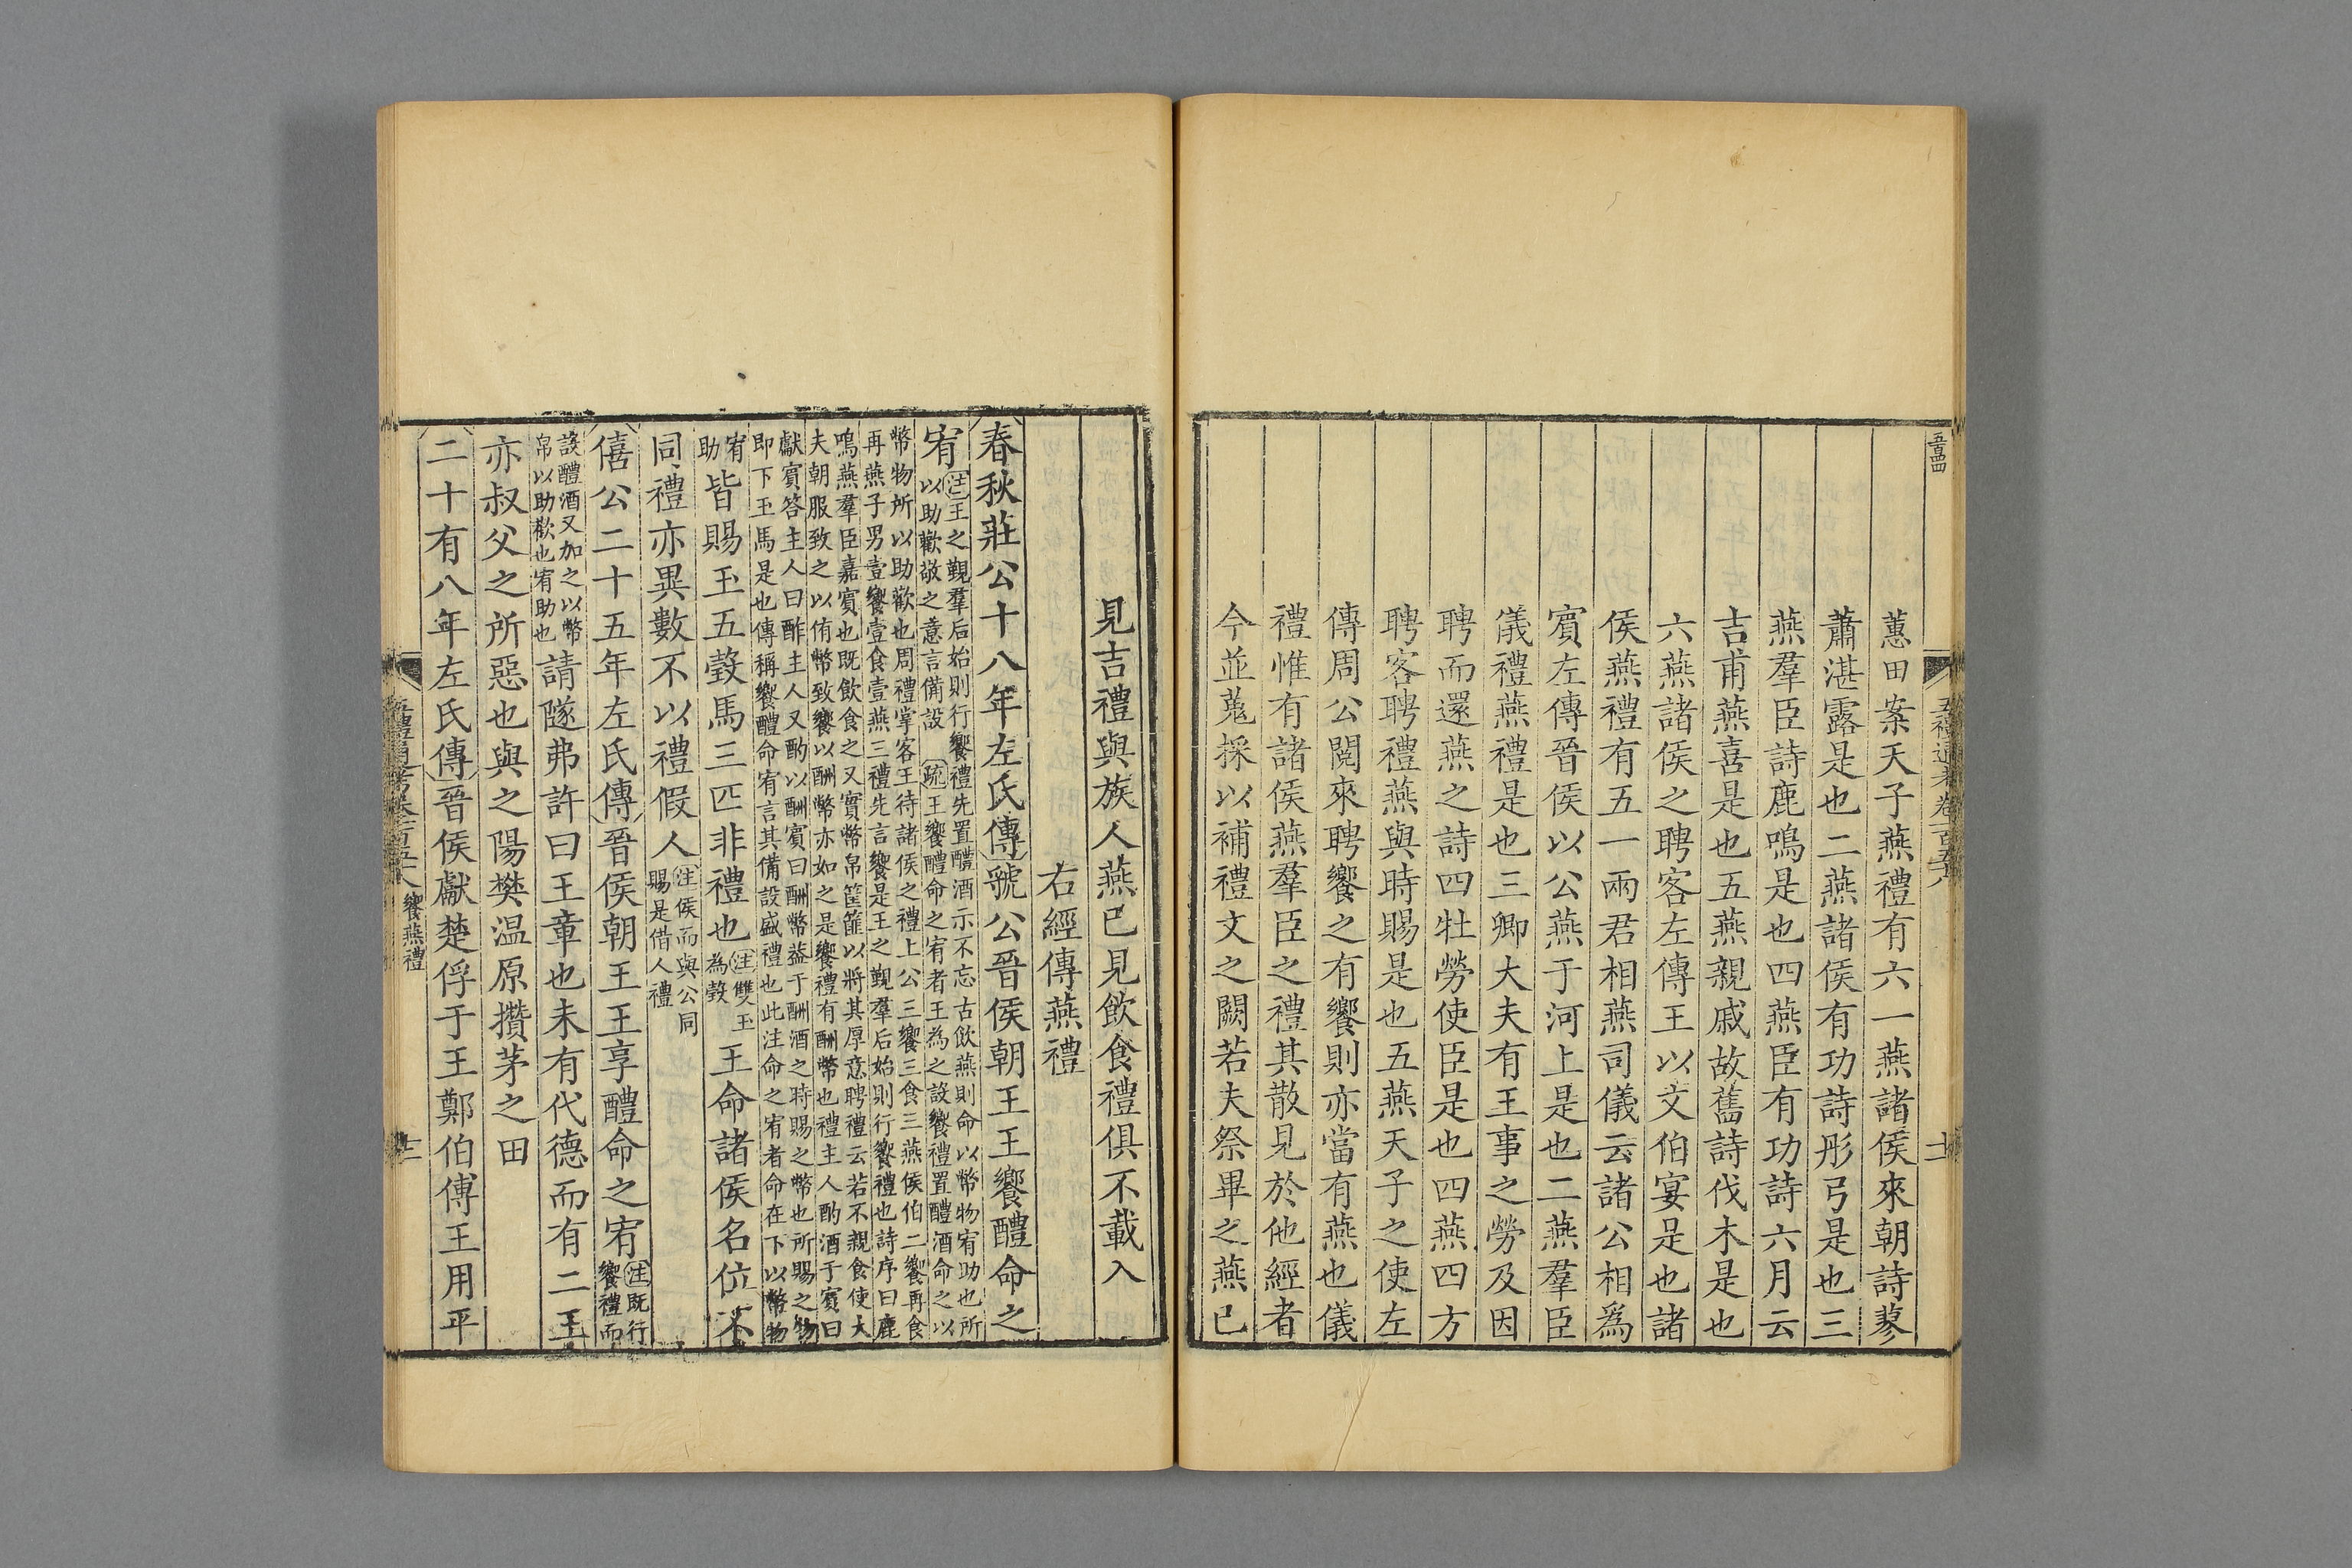 五百四四
五禮通考卷一百五十八
十一
蕙田案天子燕禮有六一燕諸侯來朝詩蓼
蕭湛露是也二燕諸侯有功詩彤弓是也三
燕羣臣詩鹿鳴是也四燕臣有功詩六月云
吉甫燕喜是也五燕親戚故舊詩伐木是也
六燕諸侯之聘客左傳王以文伯宴是也諸
侯燕禮有五一兩君相燕司儀云諸公相爲
賓左傳晉侯以公燕于河上是也二燕羣臣
儀禮燕禮是也三卿大夫有王事之勞及因
聘而還燕之詩四牡勞使臣是也四燕四方
聘客聘禮燕與時賜是也五燕天子之使左
傳周公閱來聘饗之有饗則亦當有燕也儀
禮惟有諸侯燕羣臣之禮其散見於他經者
今並蒐採以補禮文之闕若夫祭畢之燕已
見吉禮與族人燕已見飲食禮俱不載入
右經傳燕禮
春秋莊公十八年左氏傳虢公晉侯朝王王饗醴命之
宥注王之覲羣后始則行饗禮先置醴酒示不忘古飲燕則命以幣物宥助也所
以助歡敬之意言備設 疏王饗醴命之宥者王為之設饗禮置醴酒命之以
幣物所以助歡也周禮掌客王待諸侯之禮上公三饗三食三燕侯伯二饗再食
再燕子男壹饗壹食壹燕三禮先言饗是王之覲羣后始則行饗禮也詩序曰鹿
鳴燕羣臣嘉賓也既飲食之又實幣帛筐篚以將其厚意聘禮云若不親食使大
夫朝服致之以侑幣致饗以酬幣亦如之是饗禮有酬幣也禮主人酌酒于賓曰
獻賓答主人曰酢主人又酌以酬賓曰酬幣葢于酬酒之時賜之幣也所賜之物
即下玉馬是也傳稱饗醴命宥言其備設盛禮也此注命之宥者命在下以幣物
宥
助
皆賜玉五瑴馬三匹非禮也注雙玉
為瑴
王命諸侯名位不
同禮亦異數不以禮假人注侯而與公同
賜是借人禮
僖公二十五年左氏傳晉侯朝王王享醴命之宥注既行
饗禮而
設醴酒又加之以幣
帛以助歡也宥助也
請隧弗許曰王章也未有代德而有二王
亦叔父之所惡也與之陽樊温原攢茅之田
二十有八年左氏傳晉侯獻楚俘于王鄭伯傅王用平
五禮通考卷一百五十八 饗燕禮
十二